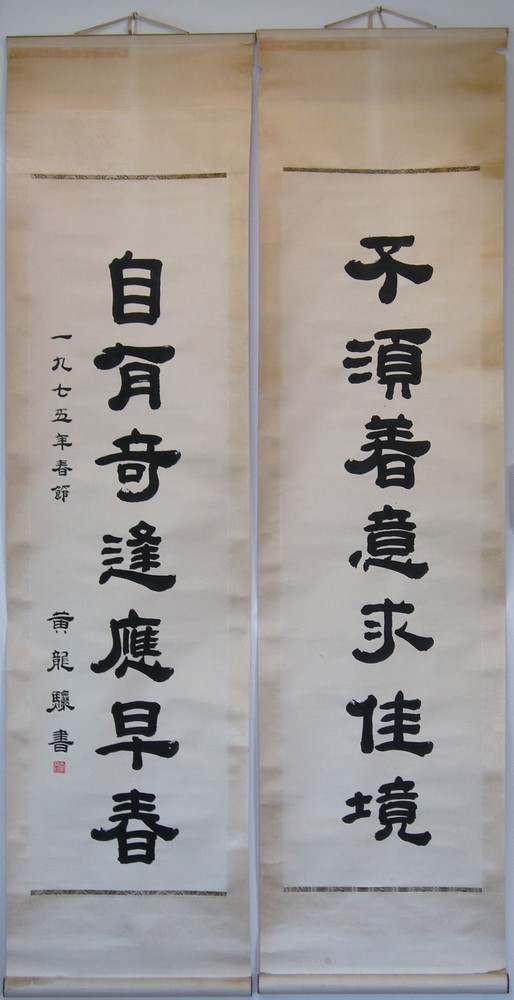 不須着意求佳境
自有奇逢應早春
一九七五年春節
黃龍驤書